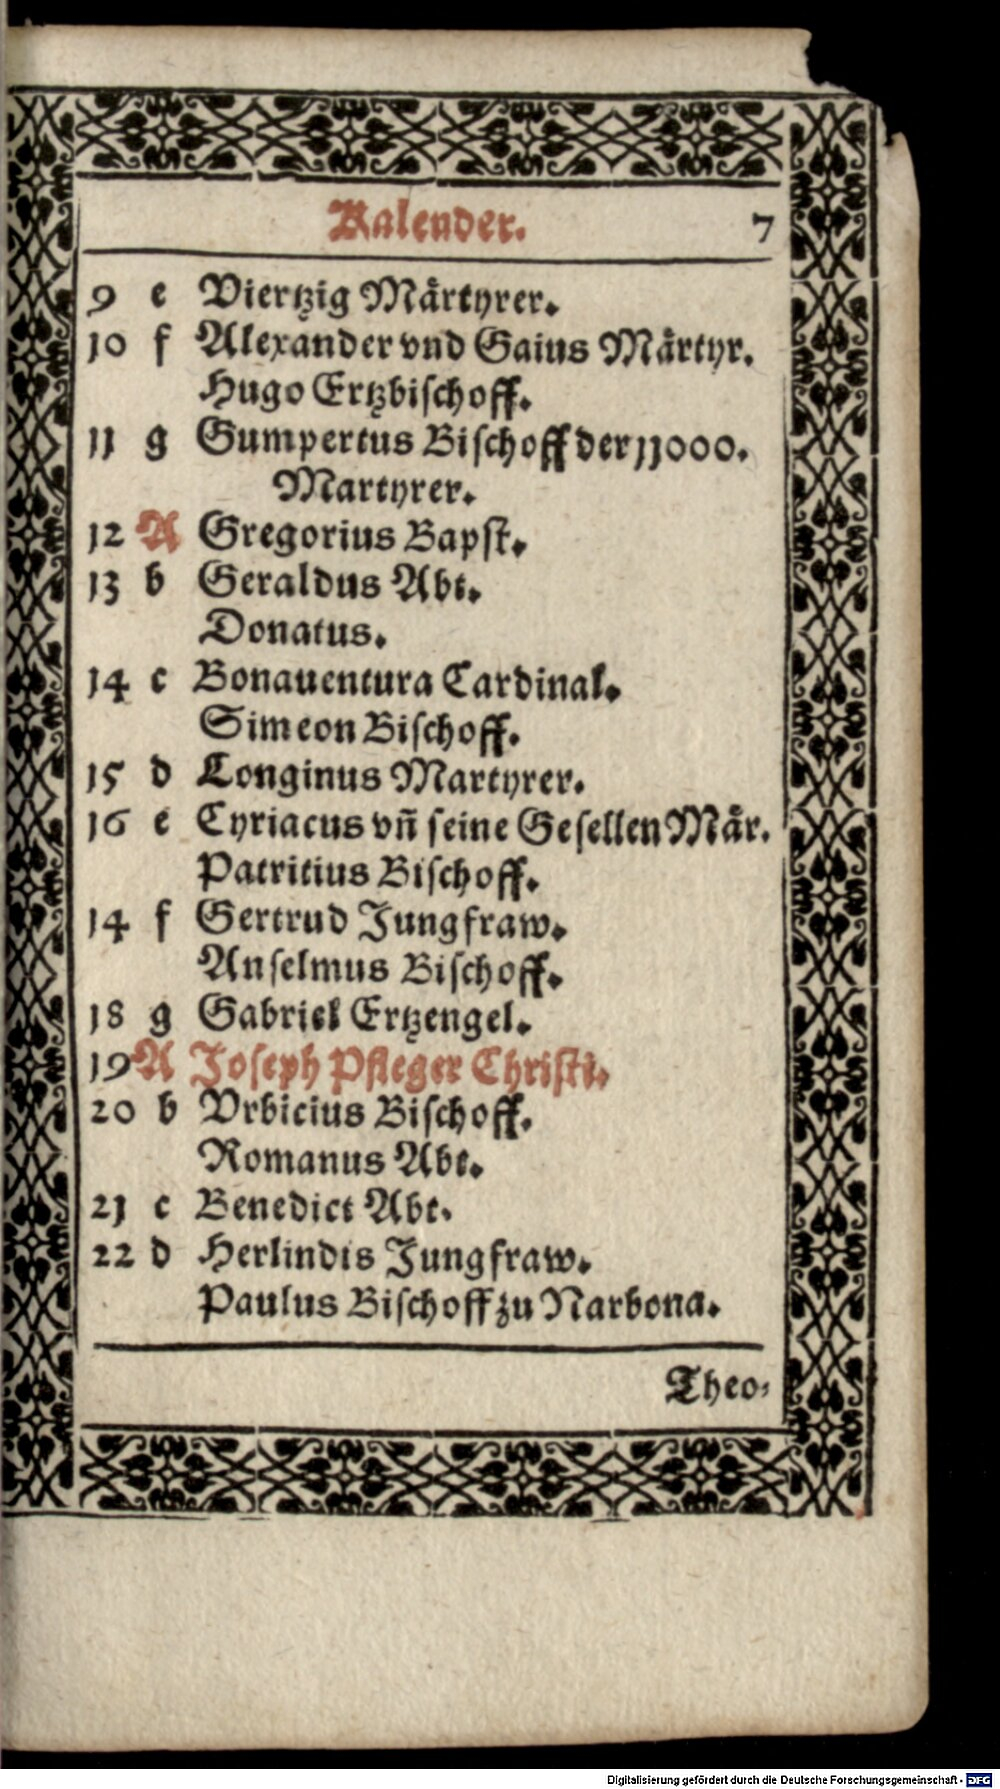 Kalender. 7
9 e Viertzig Märtyrer.
10 f Alexander vnd Gaius Märtyr.
Hugo Ertzbischoff.
11 g Gumpertus Bischoff der 11000.
Martyrer.
12 A Gregorius Bapst.
13 b Geraldus Abt.
Donatus.
14 c Bonauentura Cardinal.
Simeon Bischoff.
15 d Longinus Martyrer.
16 e Cyriacus vñ seine Gesellen Mär.
Patritius Bischoff.
14 f Gertrud Jungfraw.
Anselmus Bischoff.
18 g Gabriel Ertzengel.
19 A Joseph Pfleger Christi.
20 b Vrbicius Bischoff.
Romanus Abt.
21 c Benedict Abt.
22 d Herlindis Jungfraw.
Paulus Bischoff zu Narbona.
Theo-
Digitalisierung gefördert durch die Deutsche Forschungsgemeinschaft - DFG